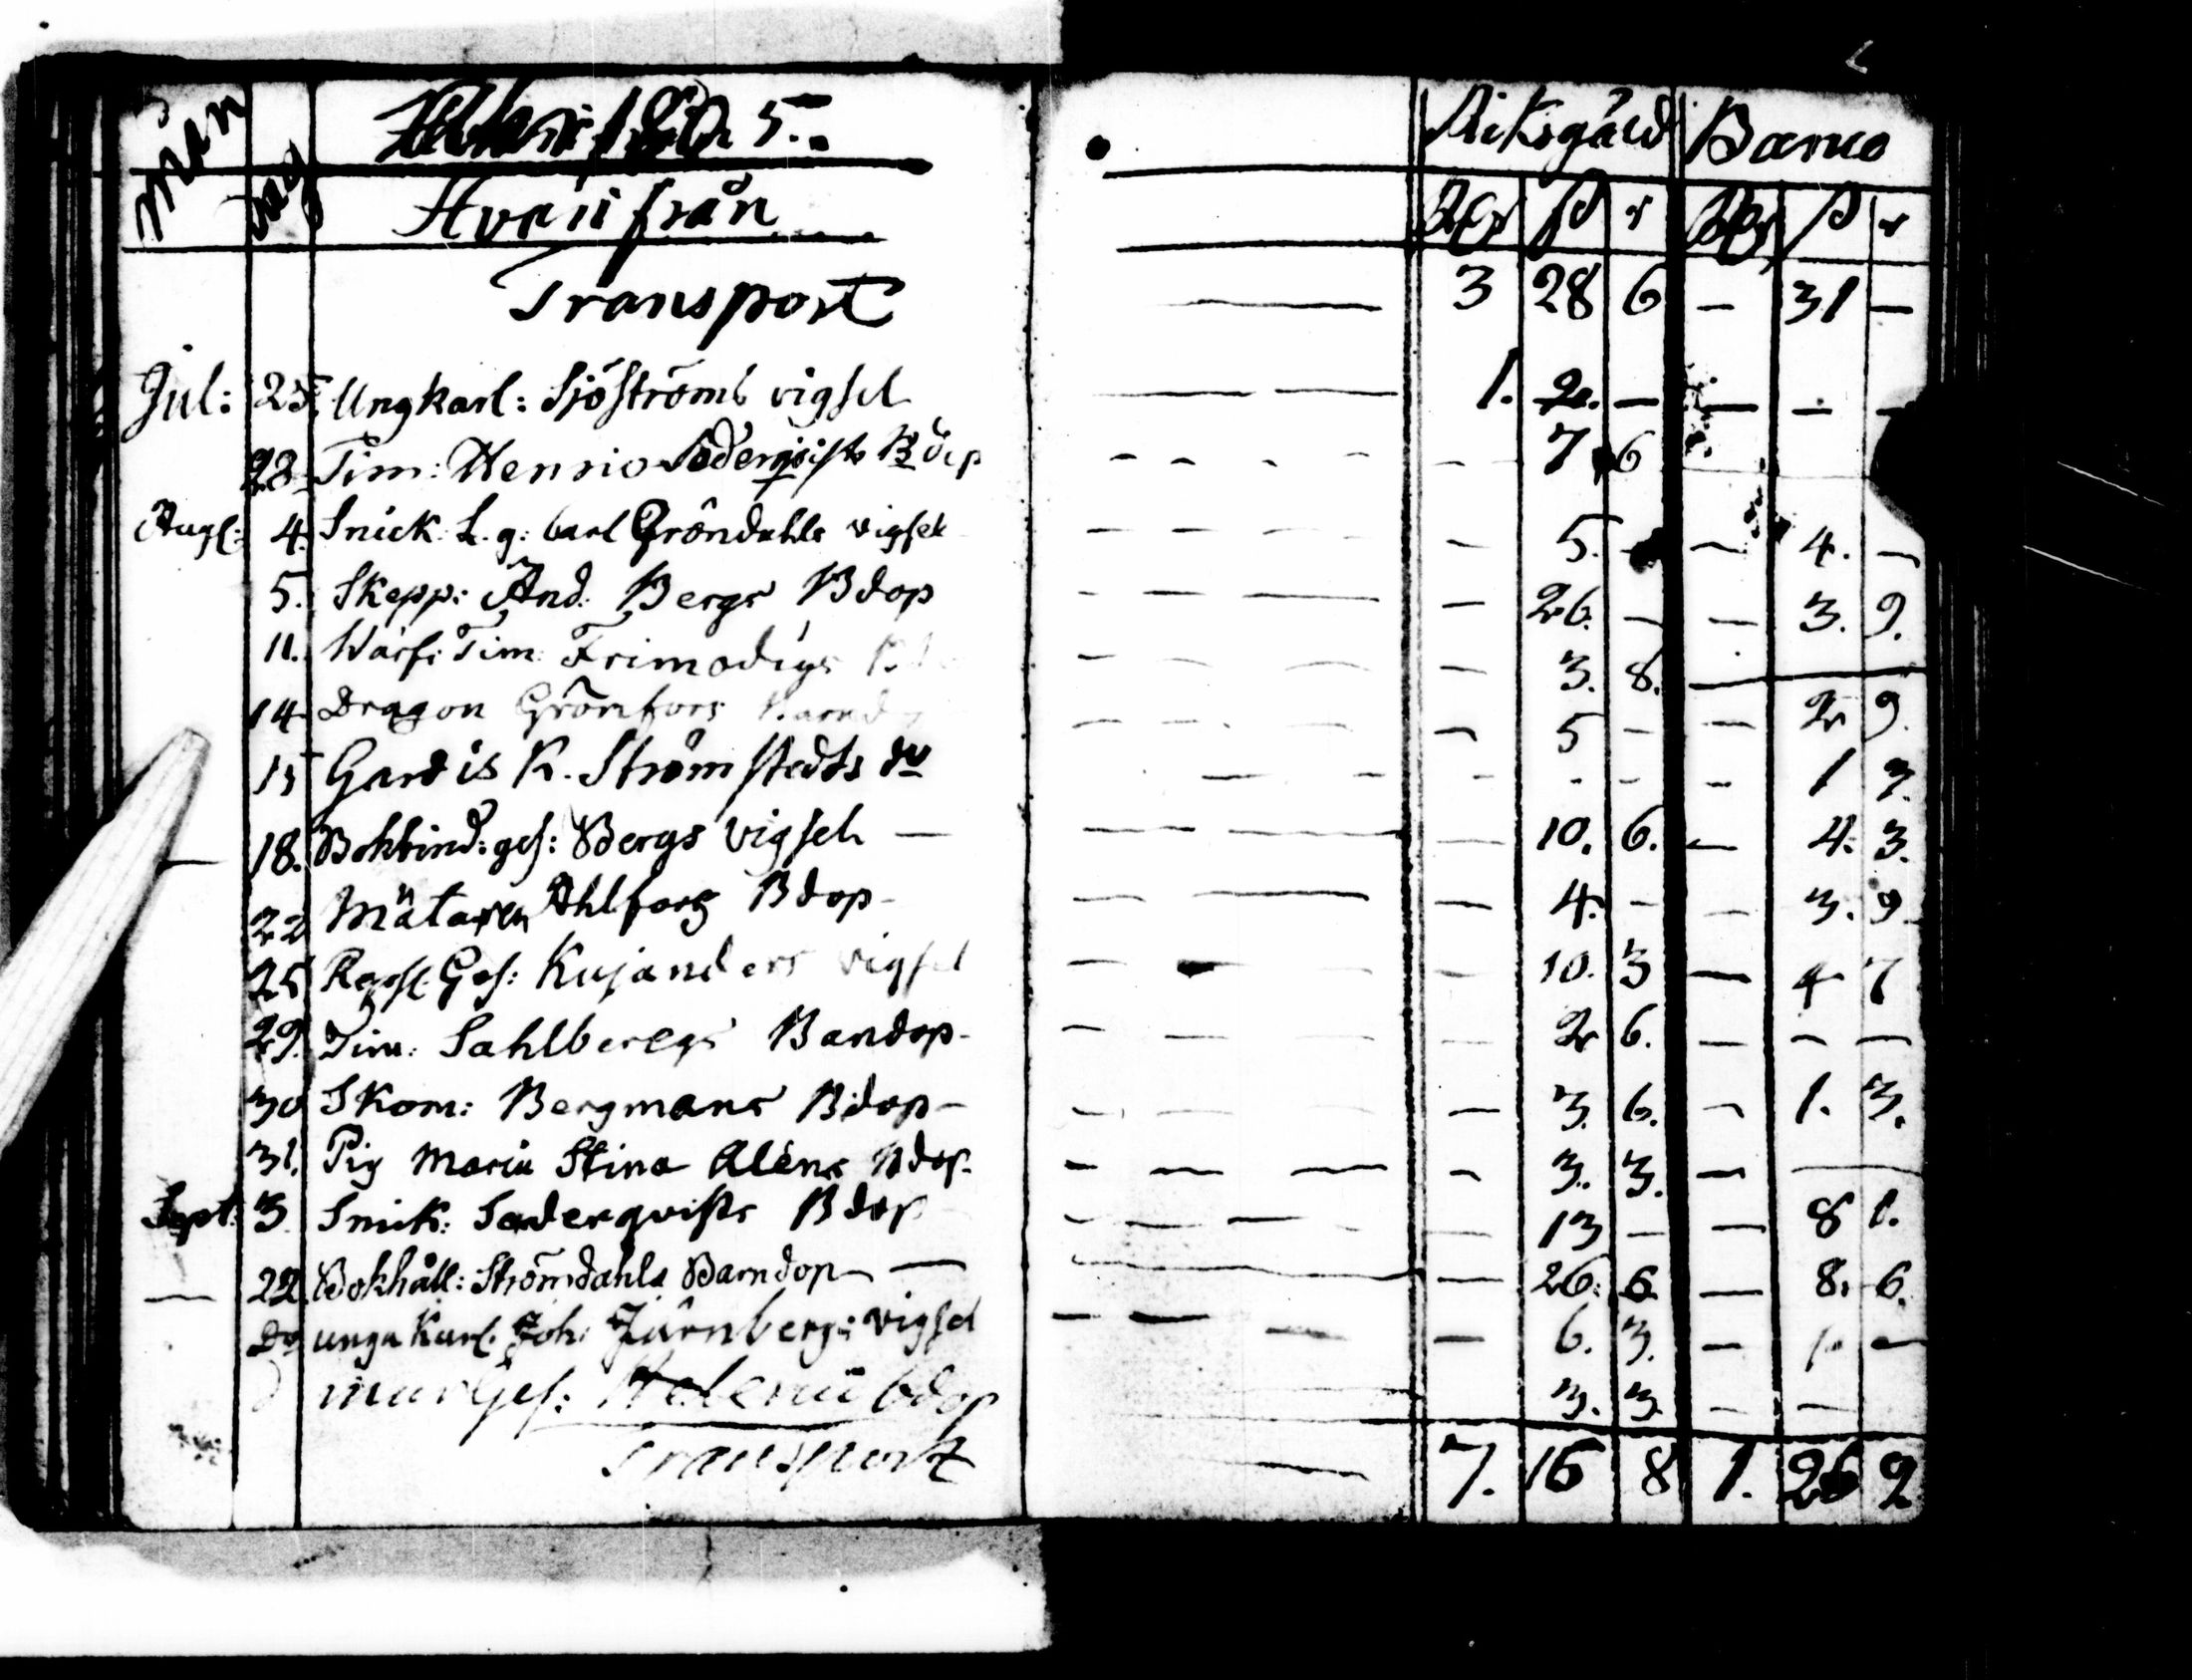 Mån dag 5. Riksgäld Banco
Hvarifrån Rdr ß r Rdr ß r
Transport — 3 28 6 — 31 —
Jul: 25. Ungkarl: Sjöströms vigsel — 1. 2. — — — —
28 Tim: Henric Söderqvists Bdop — 7 6
Aug: 4. Snick. L. g: Carl Gröndahls vigsel — 5. — — 4. —
5. Skepp: And: Bergs Bdop — 26. — — 3. 9.
11. Warfs Tim: Frimodigs — 3. 8. —
14 Dragon Grönfors Barnd — 5 — — 2 9.
15 Gardis K. Strömstedts do — - - — 1 3.
18. Bokbind: ges: Bergs vigsel — 10. 6. — 4. 3.
22 Mätaren Ahlfors Bdop — 4. — — 3. 9
25 Ges: Kujanders vigsel — 10. 3 — 4 7
29. Tim: Sahlbergs Bandop — 2 6. — — —
30 Skom: Bergmans B:dop — 3. 6. — 1. 3.
31. Pig Maria Stina Aléns Bdop — 3. 3. — —
Sept: 3. Snick: Soderqvists Bdop — 13 — — 8 1.
— 22. Bokhåll: Strömdahls Barndop — 26. 6 — 8. 6.
Do unga Karl. Joh: Järnbergs vigsel — 6. 3. — 1. —
murGes: Helenii bdop — 3. 3. — —
Transport — 7. 16 8 1. 26 2